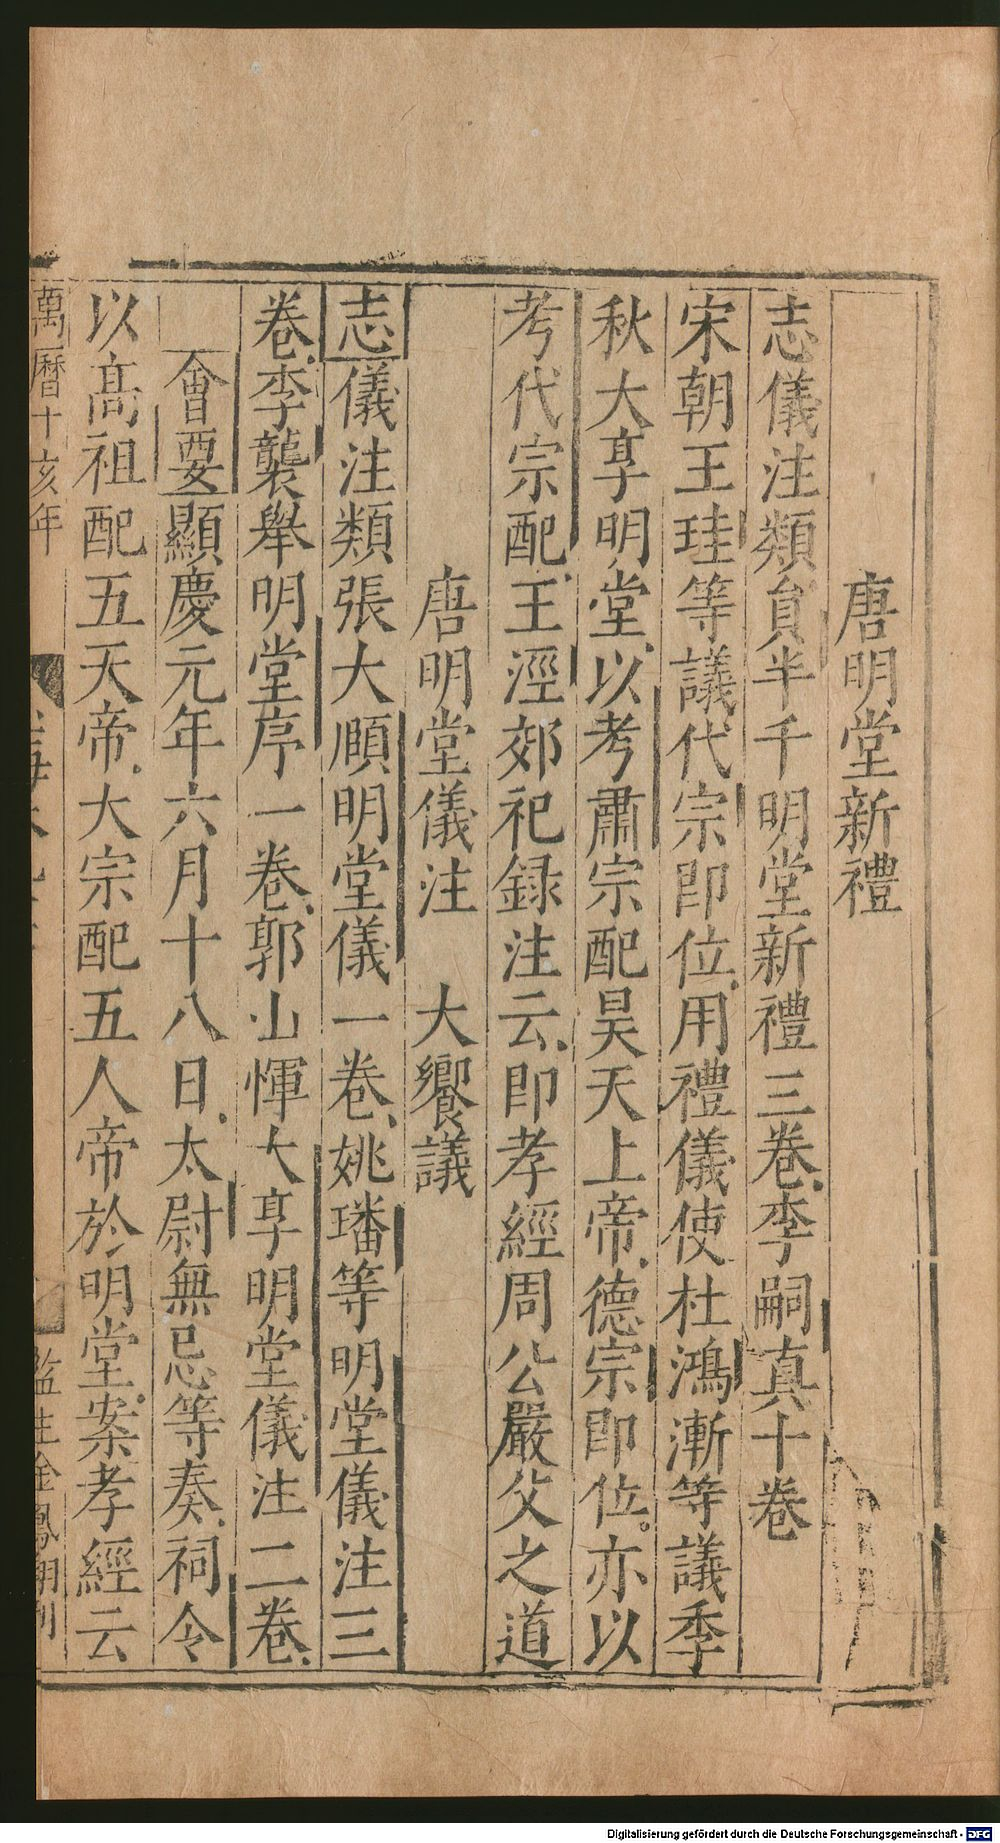 唐明堂新禮
志儀注類貟半千明堂新禮三卷李嗣真十卷
宋朝王珪等議代宗即位用禮儀使杜鴻漸等議季
秋大享明堂以考肅宗配昊天上帝德宗即位亦以
考代宗配王涇郊祀録注云即孝經周公嚴父之道
唐明堂儀注 大饗議
志儀注類張大頤明堂儀一卷姚璠等明堂儀注三
卷李襲舉明堂序一卷郭山惲大享明堂儀注二卷
會要顯慶元年六月十八日太尉無忌等奏祠令
以高祖配五天帝大宗配五人帝於明堂案孝經云
萬曆十亥年
監生金鳳翔刊
Digitalisierung gefördert durch die Deutsche Forschungsgemeinschaft - DFG